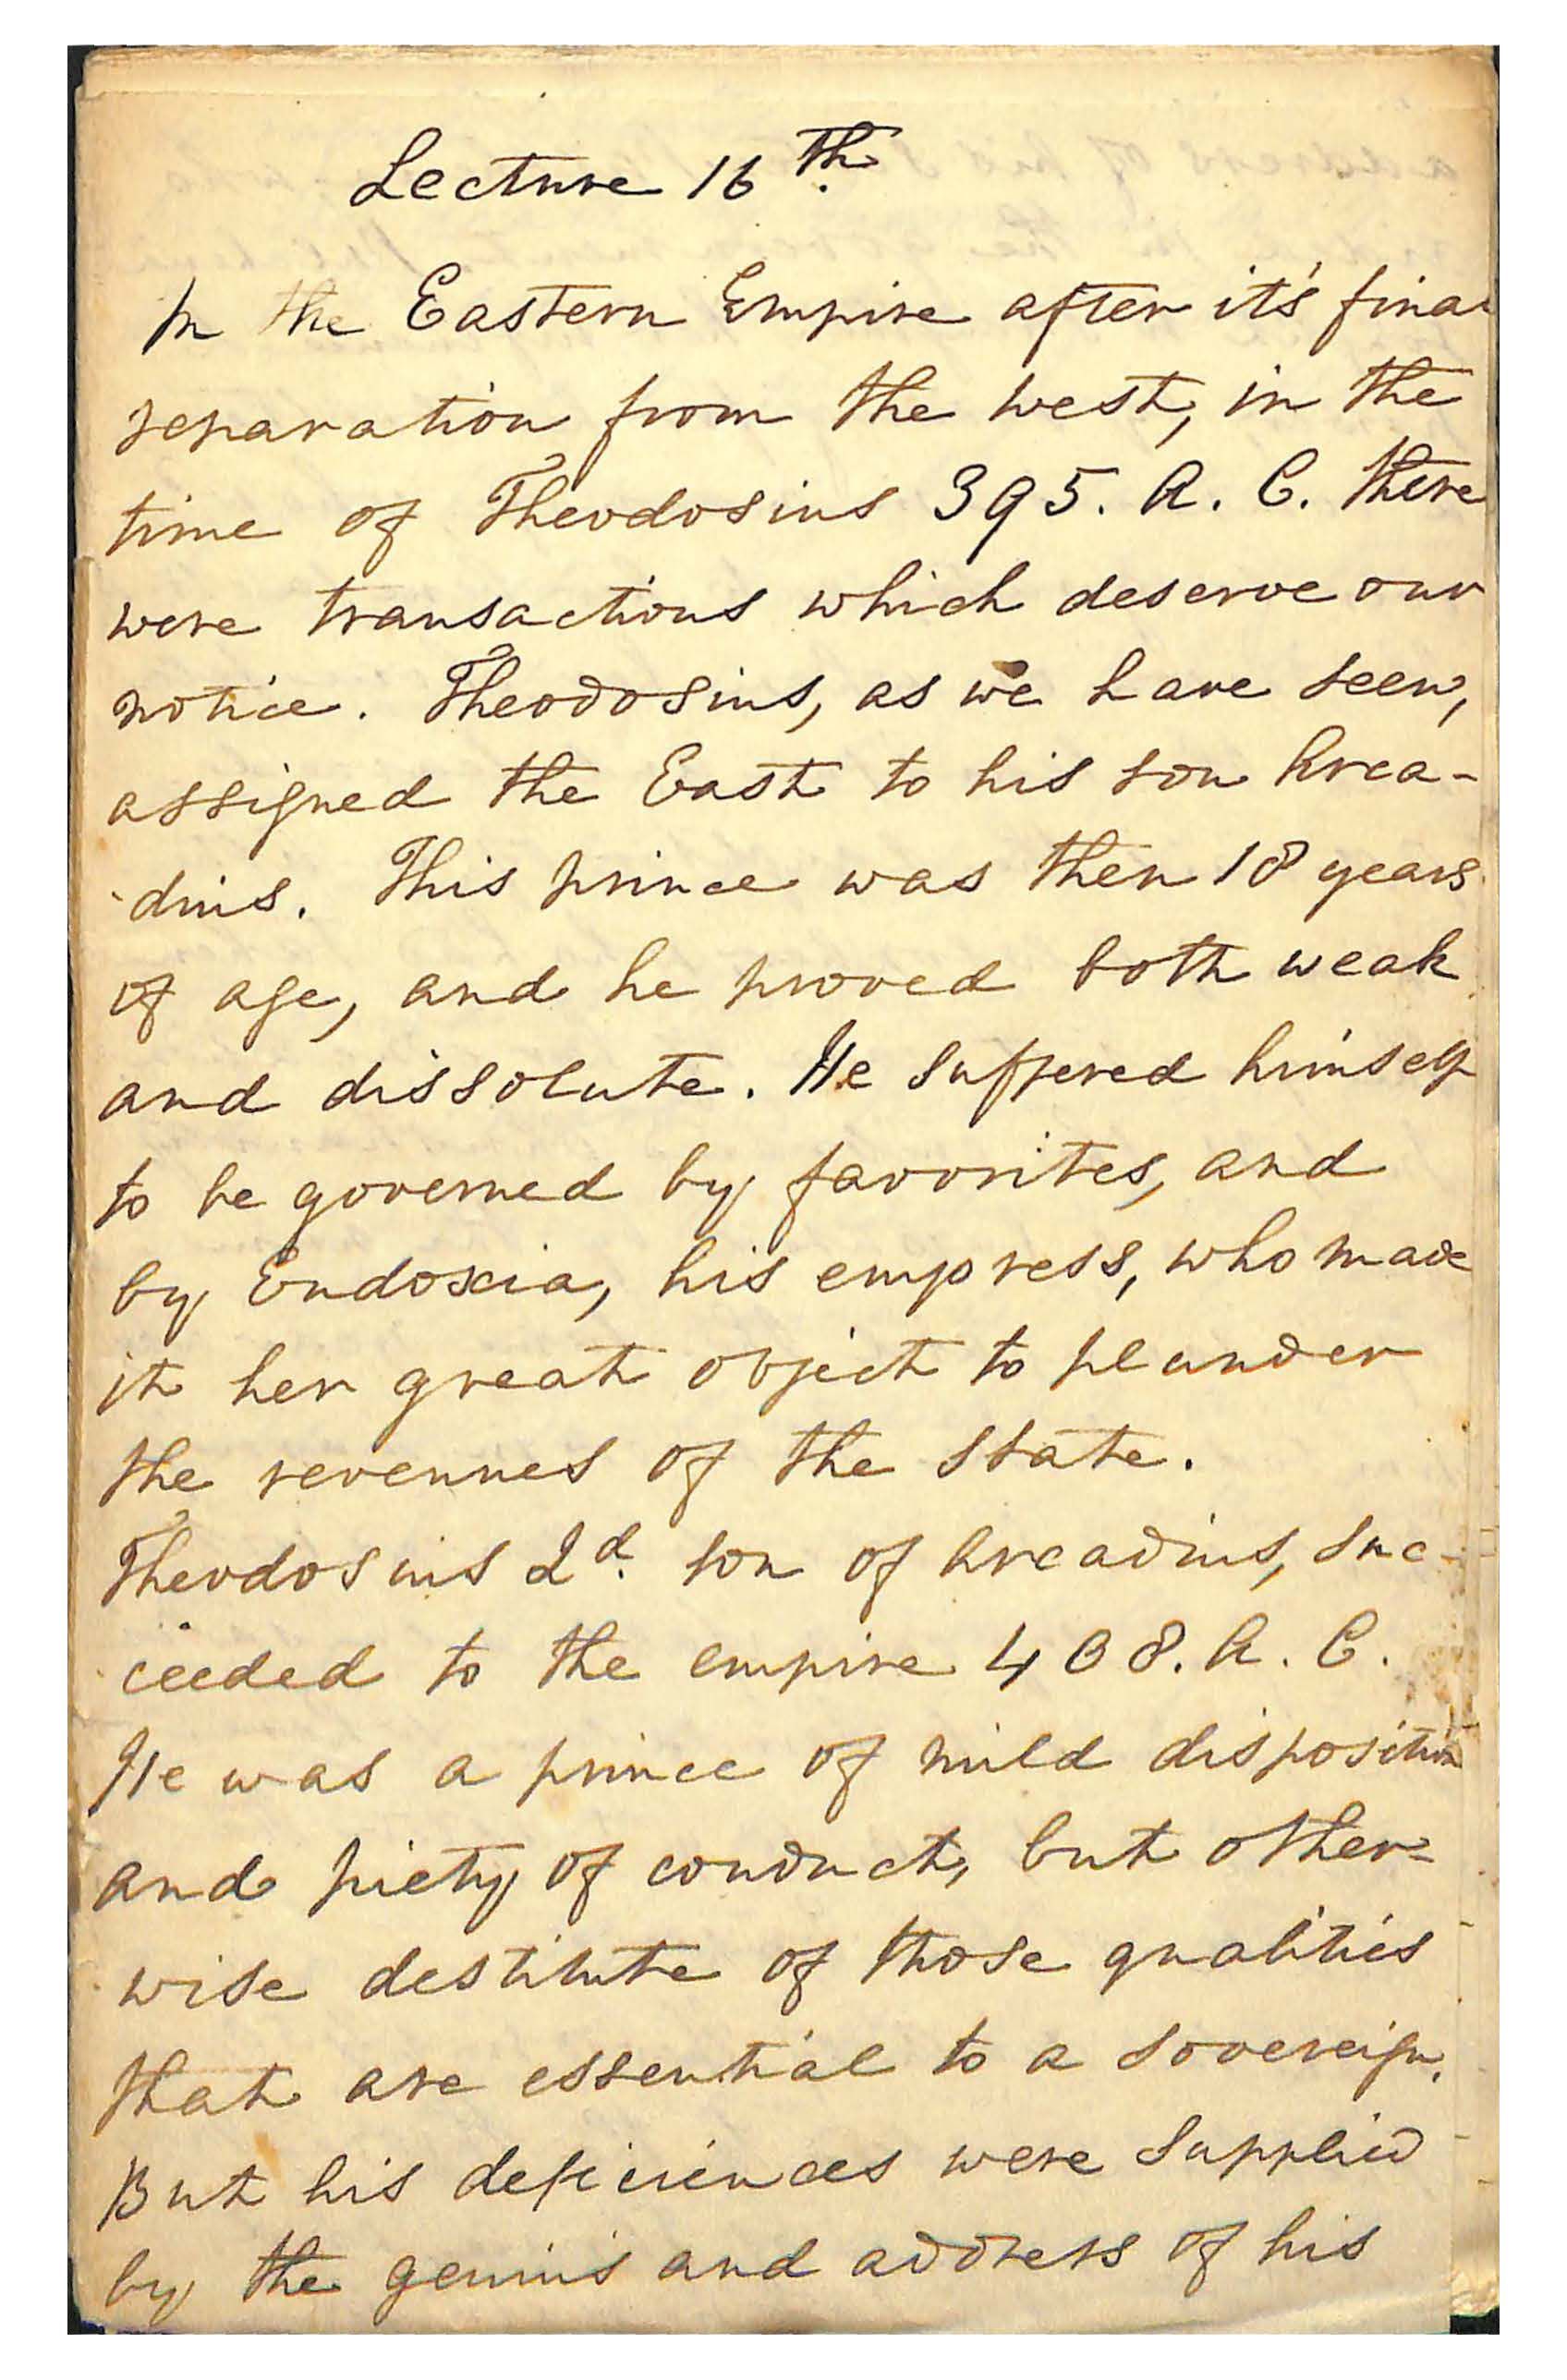 Lecture 16th.
In the Eastern Empire after it's final
separation from the west, in the
time of Theodosius 395. A. C. there
were transactions which deserve our
notice. Theodosius, as we have seen,
assigned the East to his son Arca-
-dius. This prince was then 18 years
of age, and he proved both weak
and dissolute. He suffered himself
to be governed by favorites, and
by Eudoxia, his empress, who made
it her great object to plunder
the revenues of the state.
Theodosius 2d. son of Arcadius, suc-
ceeded to the empire 408. A. C.
He was a prince of mild disposition
and piety of conduct, but other-
wise destitute of those qualities
that are essential to a sovereign.
But his deficiences were supplied
by the genius and address of his